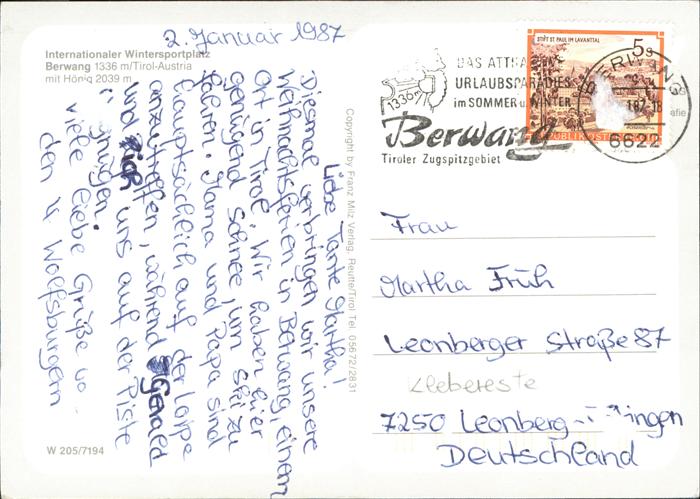 2. Januar 1987
Internationaler Wintersportplatz
Berwang 1336 m/Tirol-Austria
mit Hönig 2039 m
Liebe Tante Martha!
Diesmal verbringen wir unsere
Weihnachtsferien in Berwang, einem
Ort in Tirol. Wir haben hier
genügend Schnee, um Ski zu
fahren. Mama und Papa sind
hauptsächlich auf der Loipe
anzutreffen, während Gerald
und ich uns auf der Piste
viele liebe Grüße von
den 4 Wolfsburgern
W 205/7194
Copyright by Franz Milz Verlag, Reutte/Tirol Tel. 05672/2831
STIFT ST. PAUL IM LAVANTTAL
5 S
REPUBLIK ÖSTERREICH
DAS ATTRAKTIVE
URLAUBSPARADIES
im SOMMER u. WINTER
1336m
Berwang
Tiroler Zugspitzgebiet
BERWANG
6622
Frau
Martha Früh
Leonberger Straße 87
Klebereste
7250 Leonberg-
Deutschland